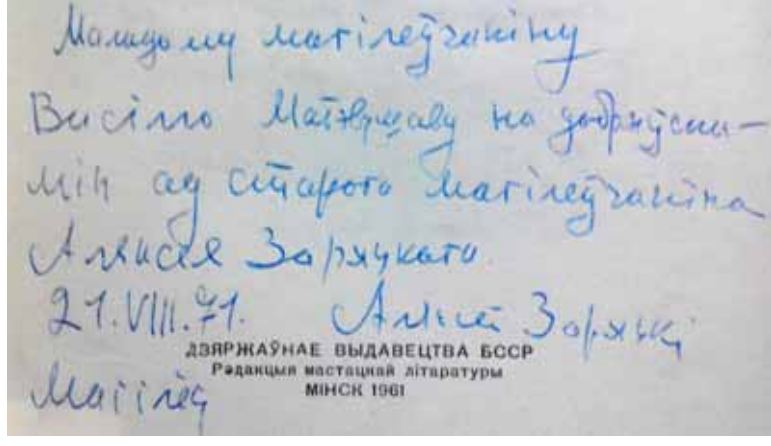 Маладому магілеўчаніну
Васілю Матэвушаву на добры ўспа-
мін ад старога магілеўчаніна
Алякся Зарыцкага.
21.VIII.71. Аляксей Зарыцкі
ДЗЯРЖАЎНАЕ ВЫДАВЕЦТВА БССР
Рэдакцыя мастацкай літаратуры
МІНСК 1961
Магілёў